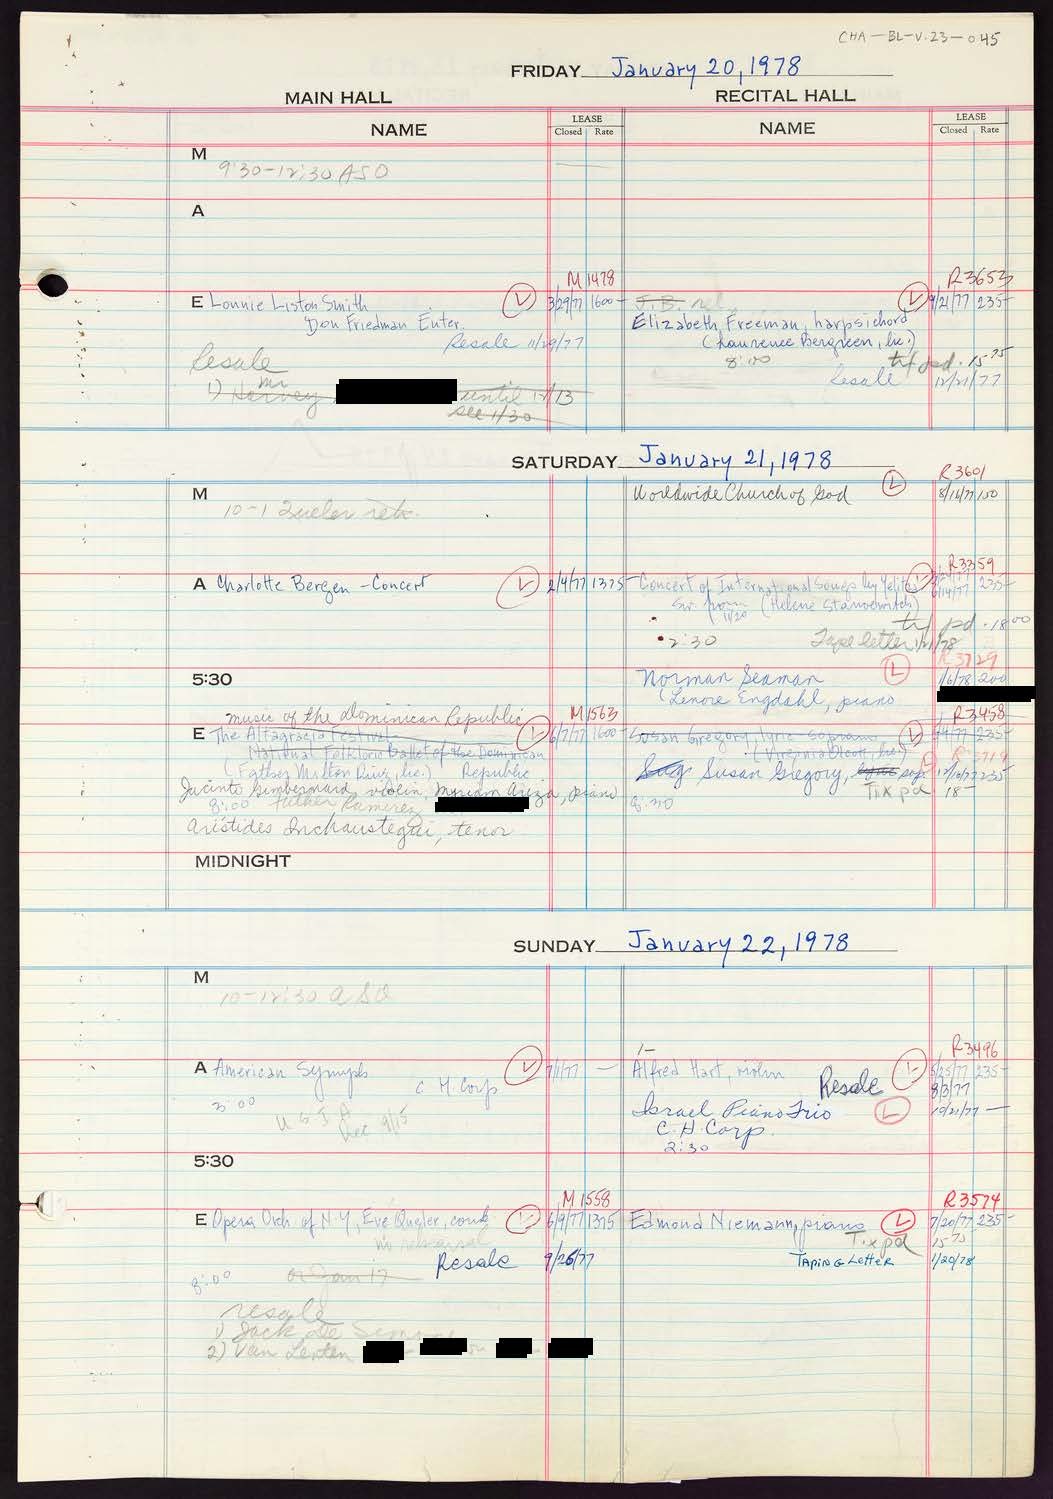 CHA-BL-V.23-045
FRIDAY January 20, 1978
MAIN HALL RECITAL HALL
NAME LEASE Closed Rate NAME LEASE Closed Rate
M
9:30-12:30 ASO
A
M 1478 R3653
E Lonnie Liston Smith L 3/29/77 1600- J.B. rel L 9/21/77 235-
Don Friedman Enter. Elizabeth Freeman, harpsichord
Resale 11/29/77 (Laurence Bergreen, lic.)
Resale 8:00 pd. 15.75
1) Harvey until 12/13 Resale 12/21/77
see 11/30
SATURDAY January 21, 1978
R3601
M Worldwide Church of God L 8/16/77 150
10-1 Queler reh.
R3359
A Charlotte Bergen - Concert L 2/4/77 1375- Concert of International Songs by L 6/14/77 235-
(Helene Stanoewitch)
11/20
pd. 18.00
2:30 Tape letter 1/21/78
R3729
5:30 Norman Seaman L 1/6/78 200
(Lenore Engdahl, piano
music of the Dominican Republic M 1563 R3458
E The Altagracia Festival- L 6/7/77 1600- Susan Gregory, lyric soprano L 235-
National Folkloric Ballet of the Dominican (Virginia Olcott, lic.)
(Father Milton Ruiz, lic.) Republic Susan Gregory, sop. 235-
Jacinto Gimbernard violin, Miriam Ariza, piano Tix pd 18-
8:00 Father Ramirez 8:30
Aristides Inchaustegui, tenor
MIDNIGHT
SUNDAY January 22, 1978
M
10-12:30 ASO
R3496
A American Symph L 7/1/77 - Alfred Hart, violin L 5/25/77 235-
C H Corp Resale 8/3/77
3:00 Israel Piano Trio L 10/21/77 -
9/15 C.H. Corp.
2:30
5:30
M 1558 R3574
E Opera Orch of N.Y, Eve Queler, cond L 6/9/77 1375 Edmond Niemann, piano L 7/20/77 235-
no rehearsal Tix pd 15.75
Resale 9/26/77 TAPING LETTER 1/20/78
8:00 or Jan 17
resale
1) Jack
2) Van